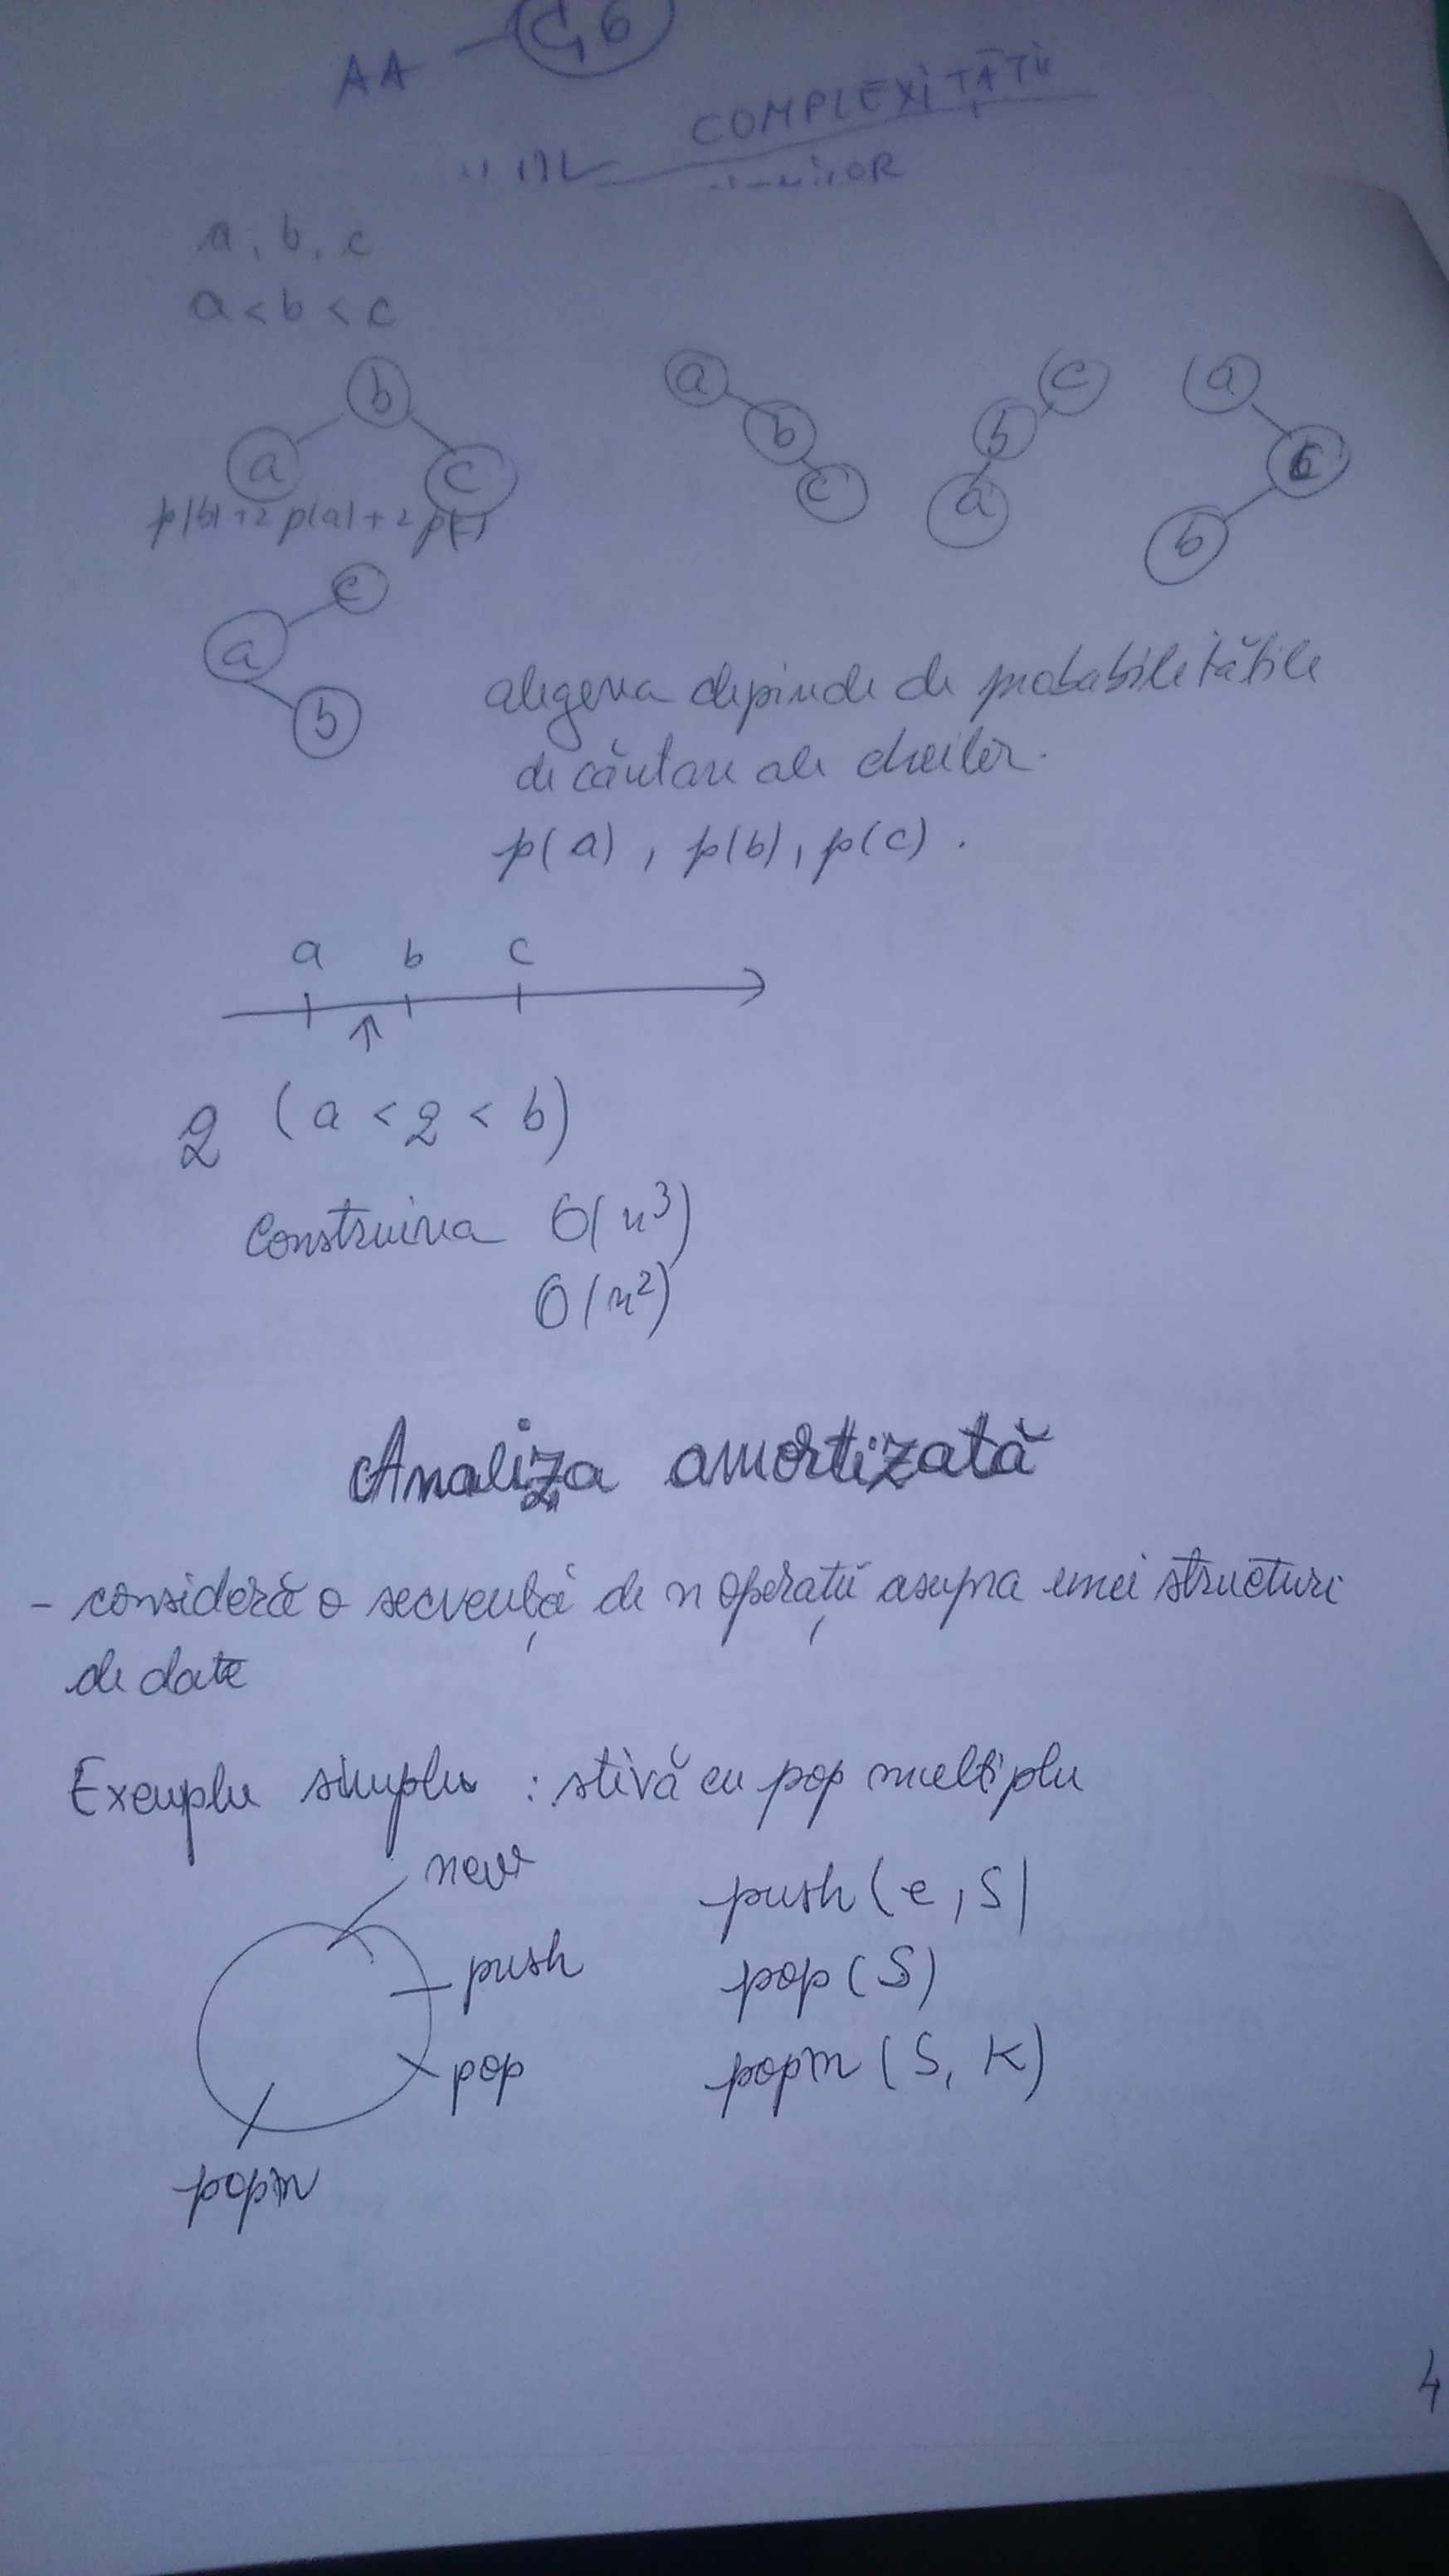 AA - C6
COMPLEXITĂȚII
a, b, c
a < b < c
b
a c
p(b) + 2 p(a) + 2 p(c)
a
b
c
c
b
a
a
c
b
c
a
b
alegerea depinde de probabilitățile
de căutare ale cheilor.
p(a), p(b), p(c).
a b c
2 (a < 2 < b)
Construirea O(n³)
O(n²)
Analiza amortizată
- consideră o secvență de n operații asupra unei structuri
de date
Exemplu simplu : stivă cu pop multiplu
new
push
pop
popm
push(e, S)
pop(S)
popm(S, K)
4